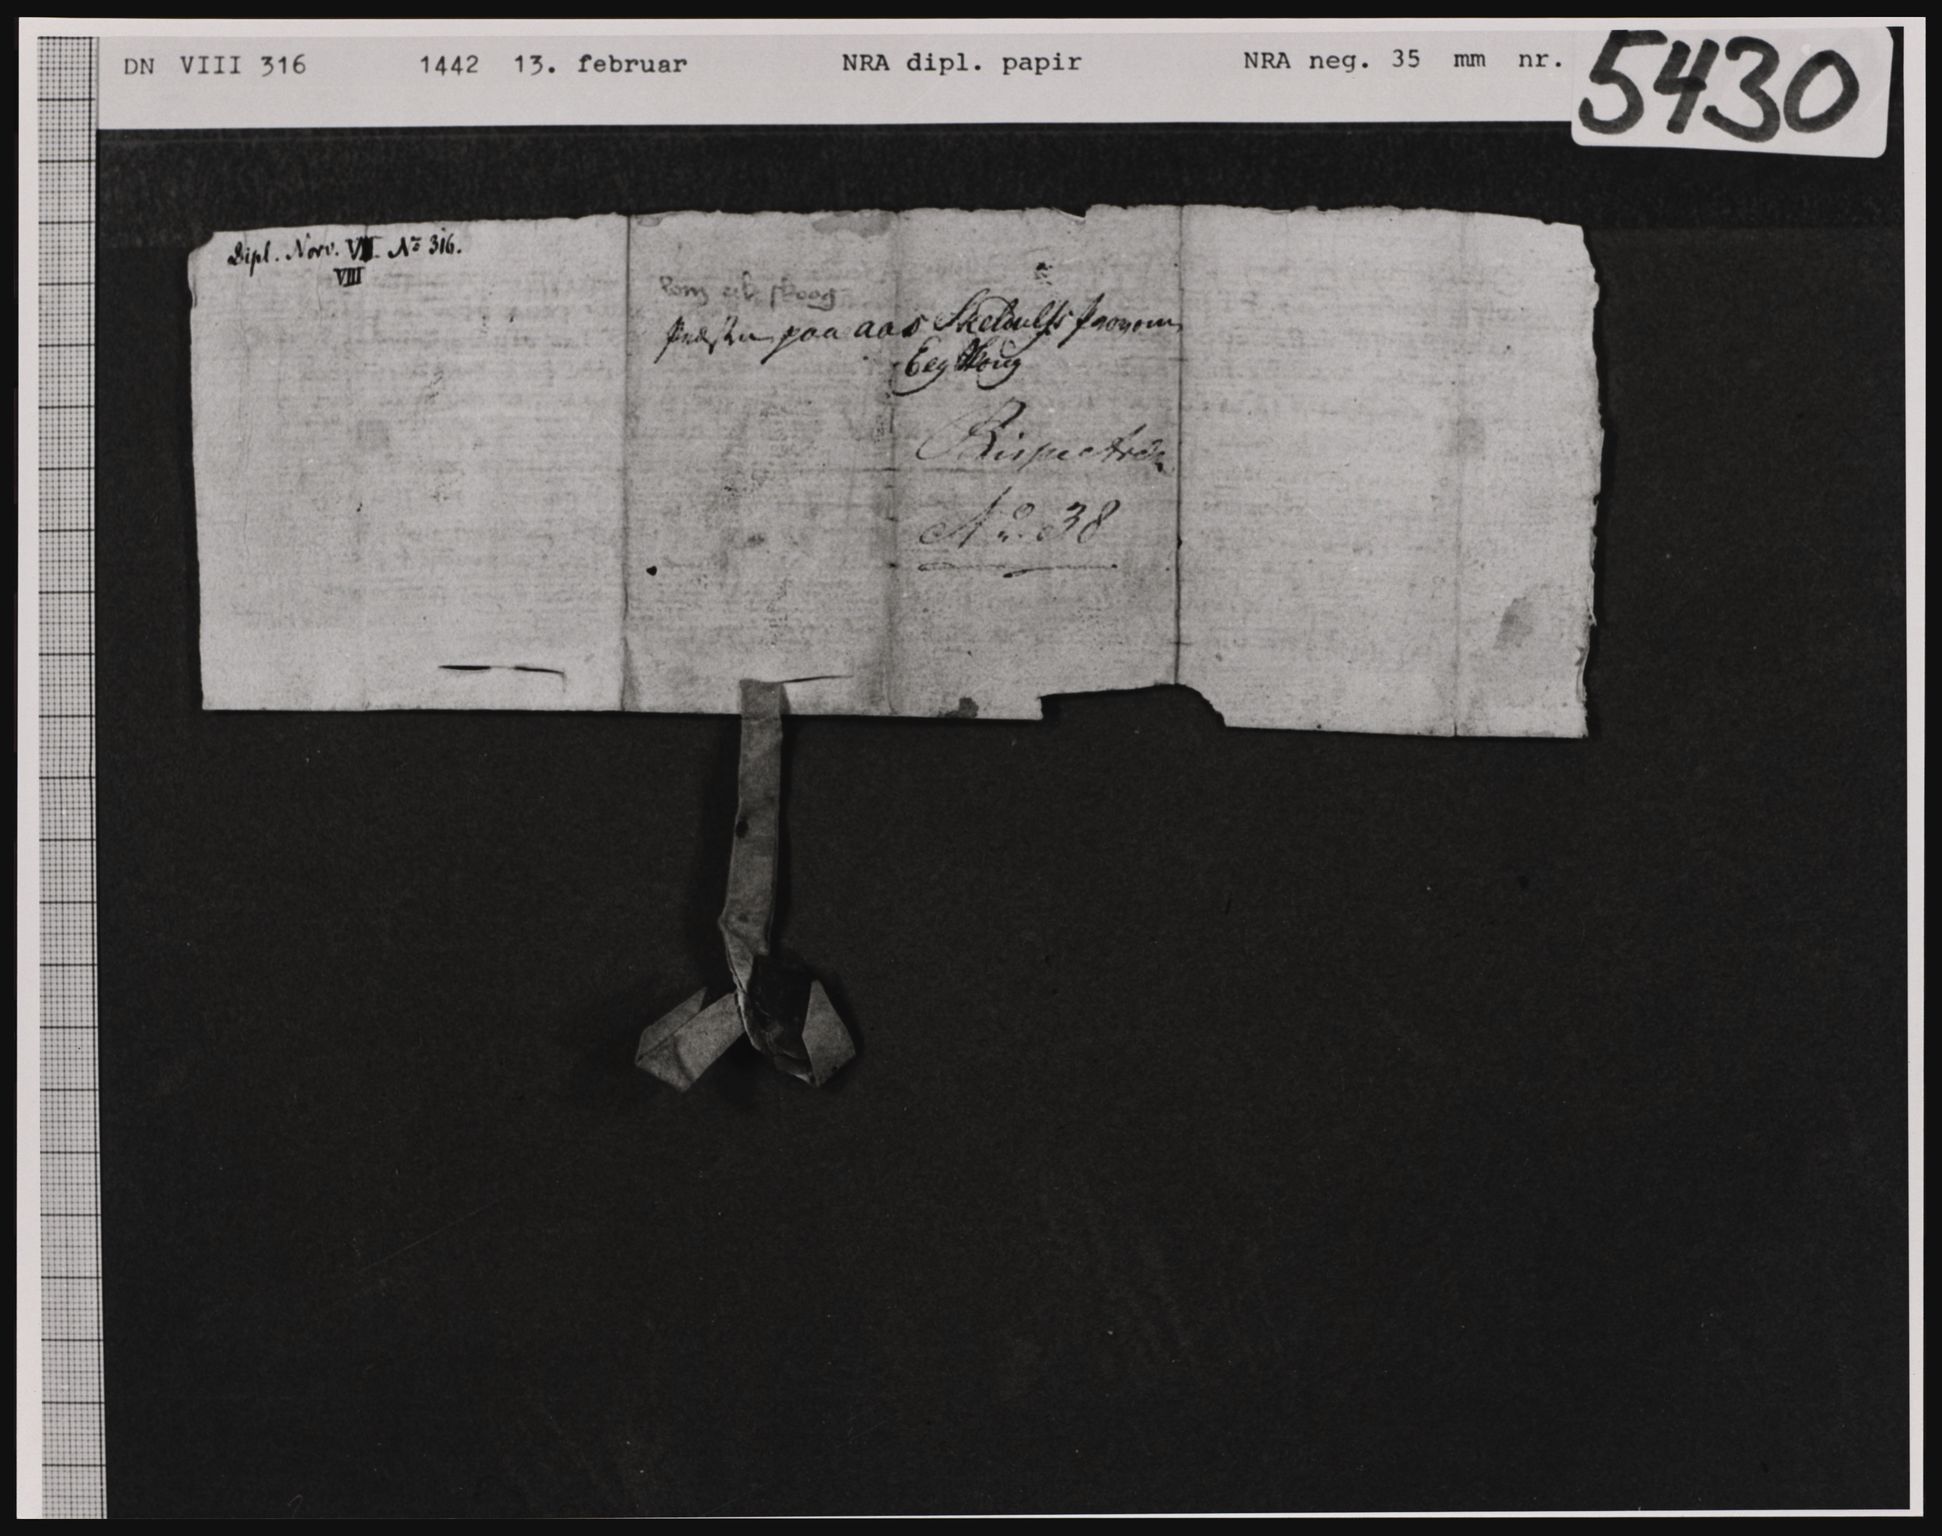 DN VIII 316 1442 13. februar NRA dipl. papir NRA neg. 35 mm nr. 5430
Dipl. Norv. VII. No 316.
VIII
skoog
paa aas
Eegskoug
No. 38